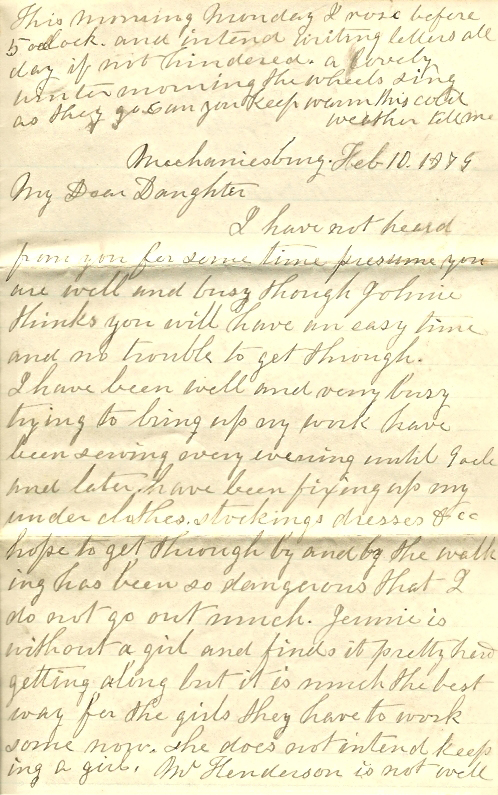 This morning Monday I rose before
5 oclock. and intend writing letters all
day if not hindered. a lovely
winter morning the wheels sing
as they go. can you keep warm this cold
weather tell me
Mechanicsburg. Feb 10. 1875
My Dear Daughter
I have not heard
from you for some time presume you
are well and busy though Johnie
thinks you will have an easy time
and no trouble to get through.
I have been well and very busy
trying to bring up my work have
been sewing every evening until 9 ocl
and later. have been fixing up my
under clothes. stockings dresses &cc
hope to get through by and by the walk
ing has been so dangerous that I
do not go out much. Jennie is
without a girl and finds it pretty hard
getting along but it is much the best
way for the girls they have to work
some now. she does not intend keep
ing a girl. Mr Henderson is not well